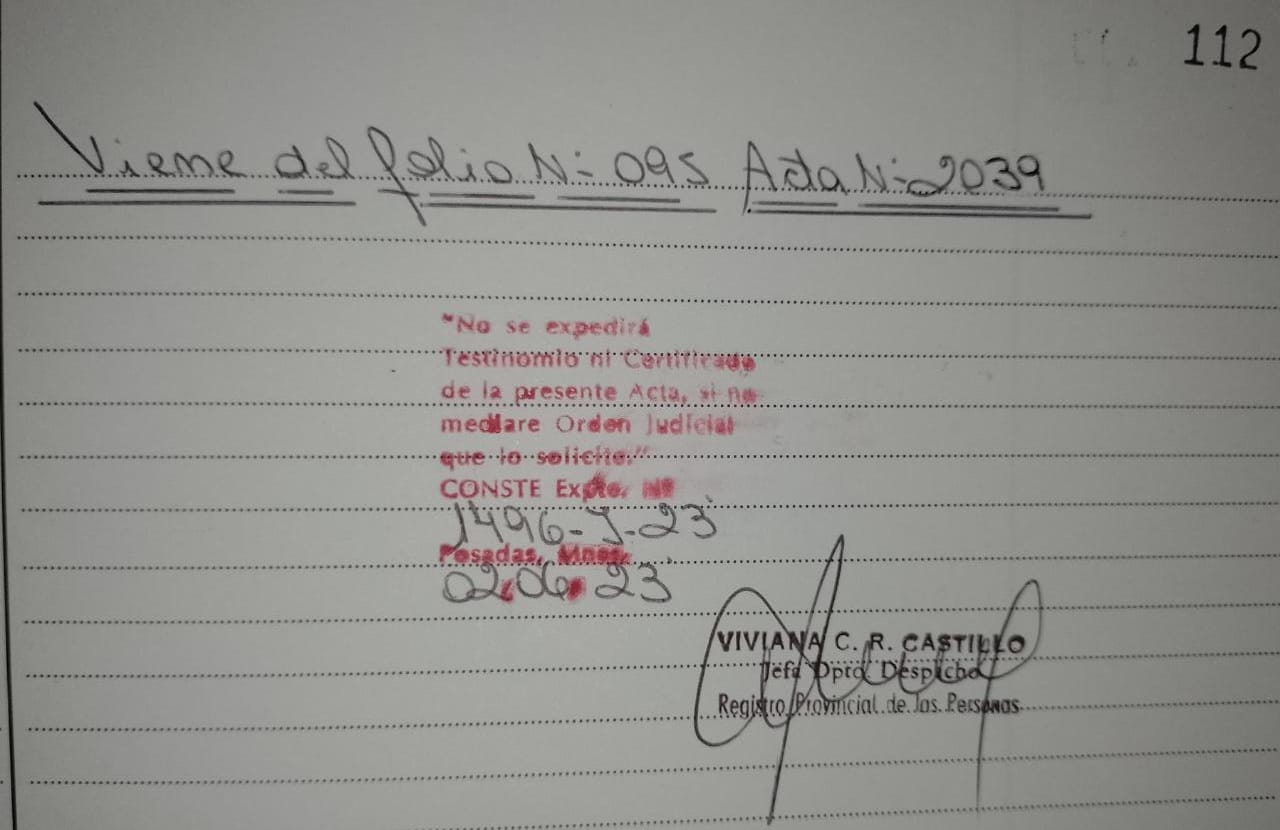 112
Viene del folio N- 095 Acta N- 2039
"No se expedirá
Testinomio ni Certificado
de la presente Acta, si no
mediare Orden Judicial
que lo solicite."
CONSTE Expte. Nº
1496-J-23
Posadas, Mnes.
02.06.23
VIVIANA C. R. CASTILLO
Jefa Dpto. Despacho
Registro Provincial de las Personas